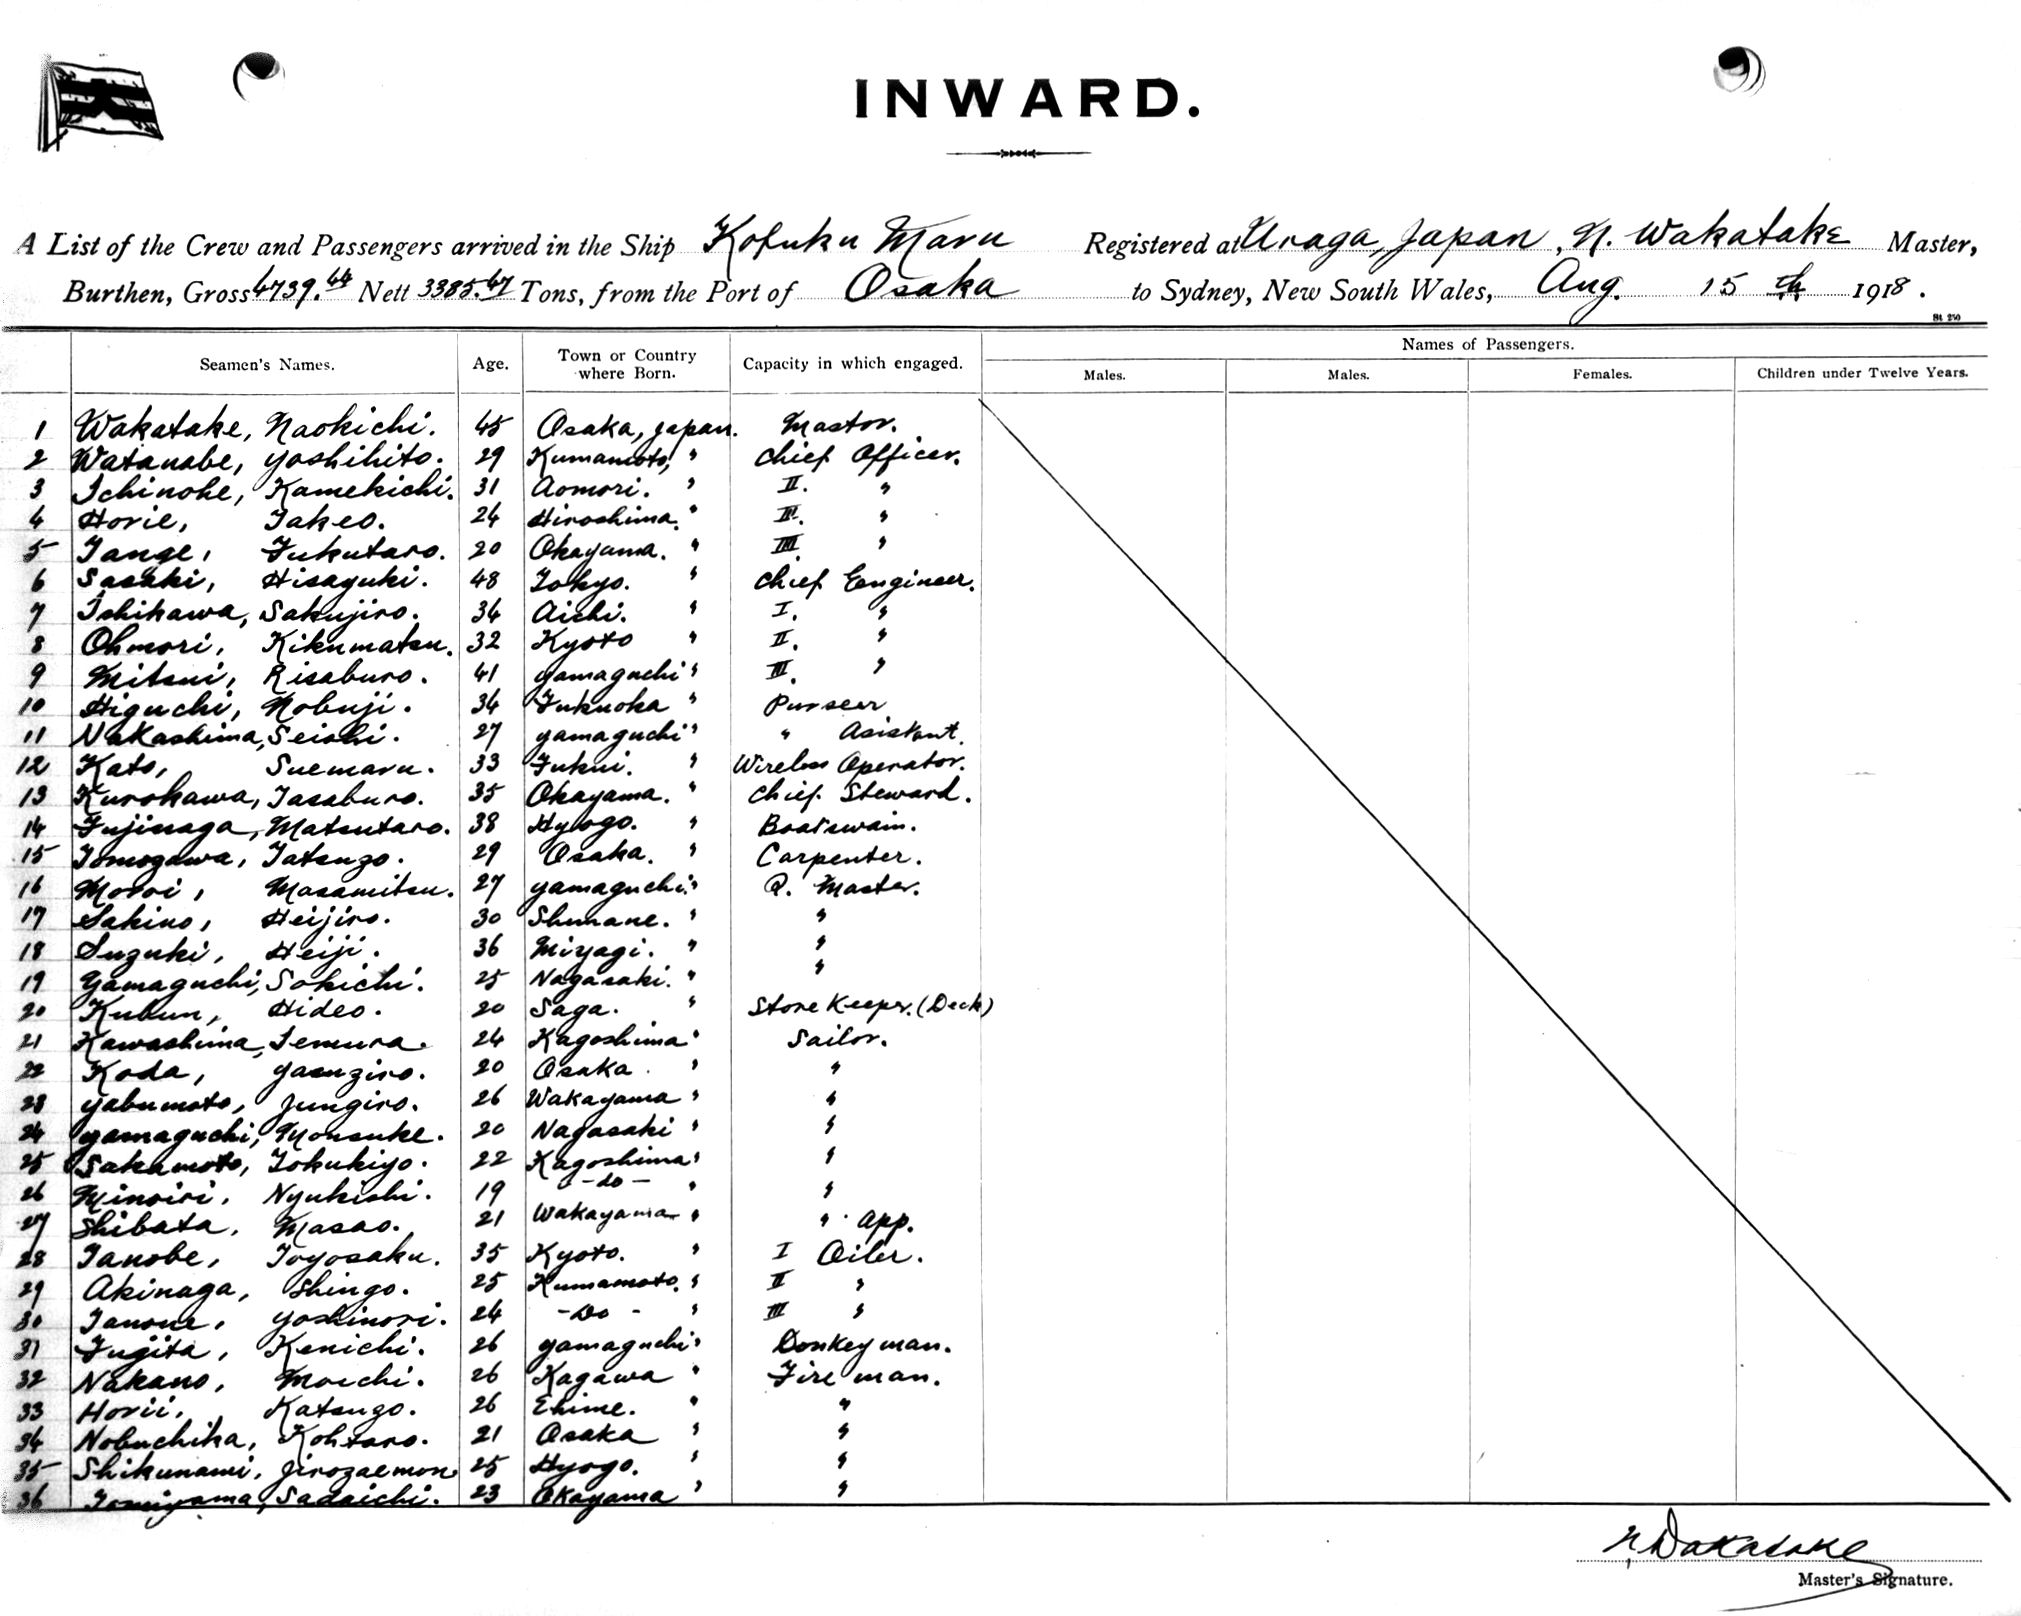 INWARD.
A List of the Crew and Passengers arrived in the Ship Kofuku Maru Registered at Uraga, Japan, N. Wakatake Master,
Burthen, Gross 4739.44 Nett 3385.47 Tons, from the Port of Osaka to Sydney, New South Wales, Aug. 15th 1918.
St 250
Seamen's Names. Age. Town or Country where Born. Capacity in which engaged. Names of Passengers.
Males. Males. Females. Children under Twelve Years.
1 Wakatake, Naokichi. 45 Osaka, Japan. Mastor.
2 Watanabe, Yoshihito. 29 Kumamoto, " Chief Officer.
3 Ichinohe, Kamekichi. 31 Aomori. " II. "
4 Horie, Takeo. 24 Hiroshima. " III. "
5 Tange, Fukutaro. 20 Okayama. " IIII. "
6 Sasaki, Hisayuki. 48 Tokyo. " Chief Eengineer.
7 Ishikawa, Sakujiro. 34 Aichi. " I. "
8 Ohmori, Kikumatsu. 32 Kyoto " II. "
9 Mitsui, Risaburo. 41 Yamaguchi " III. "
10 Higuchi, Nobuji. 34 Fukuoka " Purseer
11 Nakashima, Seishi. 27 Yamaguchi " " Asistant.
12 Kato, Suemaru. 33 Fukui. " Wireless Operator.
13 Kurokawa, Tasaburo. 35 Okayama. " Chief Steward.
14 Fujinaga, Matsutaro. 38 Hyogo. " Boatswain.
15 Tomogawa, Tatsugo. 29 Osaka. " Carpenter.
16 Motoi, Masamitsu. 27 Yamaguchi. " Q. Master.
17 Sakino, Heijiro. 30 Shimane. " "
18 Suzuki, Heiji. 36 Miyagi. " "
19 Yamaguchi, Sokichi. 25 Nagasaki. " "
20 Kubun, Hideo. 20 Saga. " Store Keeper. (Deck)
21 Kawashima, Temura. 24 Kagoshima " Sailor.
22 Koda, Yasugiro. 20 Osaka. " "
23 Yabumoto, Jungiro. 26 Wakayama " "
24 Yamaguchi, Monsuke. 20 Nagasaki " "
25 Sakamoto, Tokukiyo. 22 Kagoshima " "
26 Minoiri, Nyukishi. 19 -do- " "
27 Shibata, Masao. 21 Wakayama " " App.
28 Tanobe, Toyosaku. 35 Kyoto. " I Oiler.
29 Akinaga, Shingo. 25 Kumamoto. " II "
30 Tanoue, Yoshinori. 24 -Do- " III "
31 Fujita, Kenichi. 26 Yamaguchi " Donkey man.
32 Nakano, Moichi. 26 Kagawa " Fire man.
33 Horii, Katsugo. 26 Ehime. " "
34 Nobuchika, Kohtaro. 21 Osaka " "
35 Shikunami, Jirozaemon 25 Hyogo. " "
36 Tomiyama, Sadaichi. 23 Okayama " "
N. Wakatake
Master's Signature.